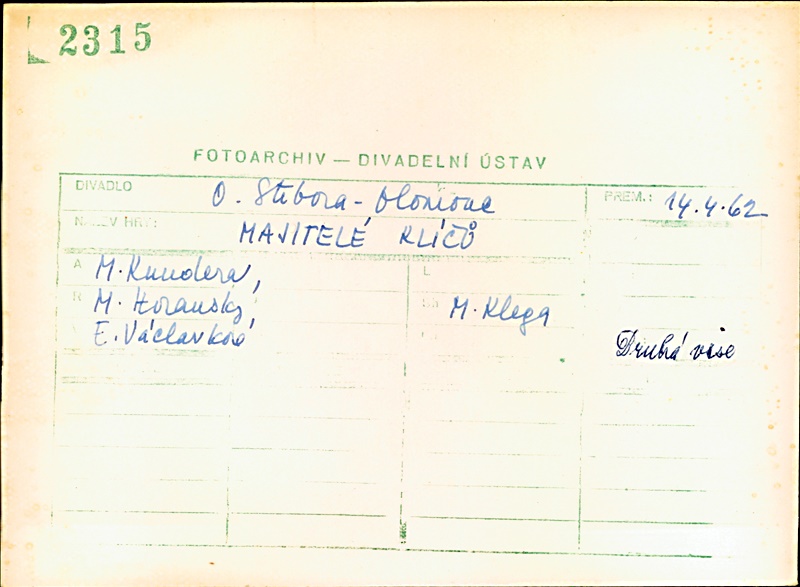 2315
FOTOARCHIV — DIVADELNÍ ÚSTAV
DIVADLO O. Stibora - Olomouc PREM.: 14.4.62
NÁZEV HRY: MAJITELÉ KLÍČŮ
A M. Kundera, L
R M. Horanský, M. Klega
E. Václavková
Druhá vise